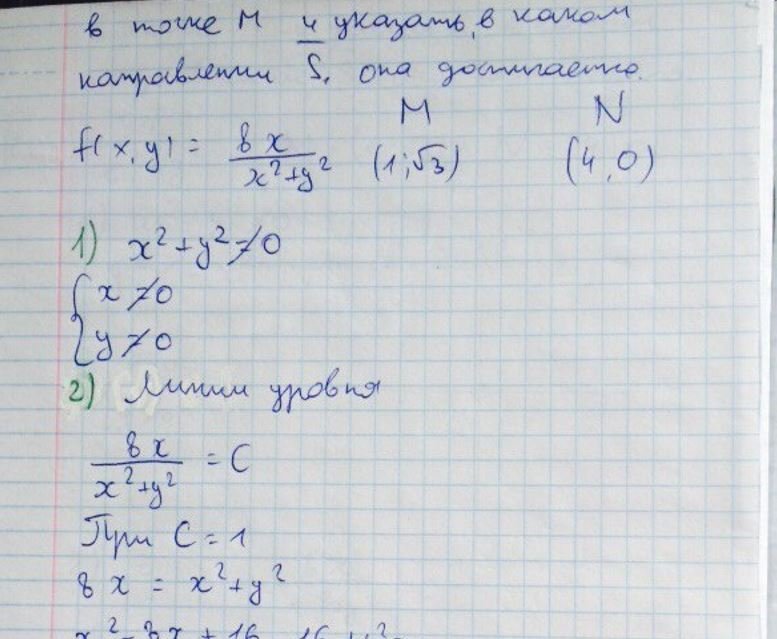 в точке М и указать, в каком
направлении S, она достигается.
M N
f(x,y) = 8x/(x²+y²) (1;√3) (4,0)
1) x²+y²≠0
{ x≠0
y≠0
2) Линии уровня
8x/(x²+y²) = C
При C = 1
8x = x²+y²
x²-8x+16-16+y²=